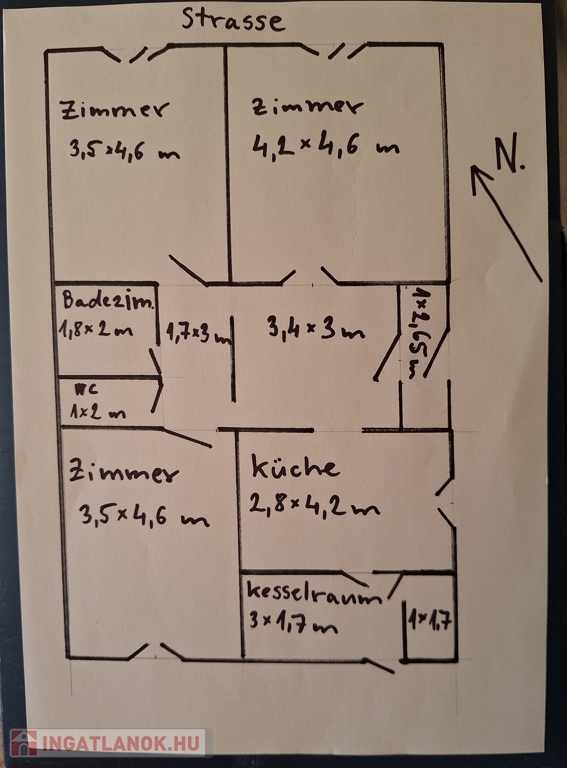 Strasse
Zimmer
3,5×4,6 m
Zimmer
4,2×4,6 m
N.
Badezim.
1,8×2 m
1,7×3m
3,4×3m
1×2,65 m
WC
1×2 m
Zimmer
3,5×4,6 m
Küche
2,8×4,2m
Kesselraum
3×1,7 m
1×1,7
INGATLANOK.HU